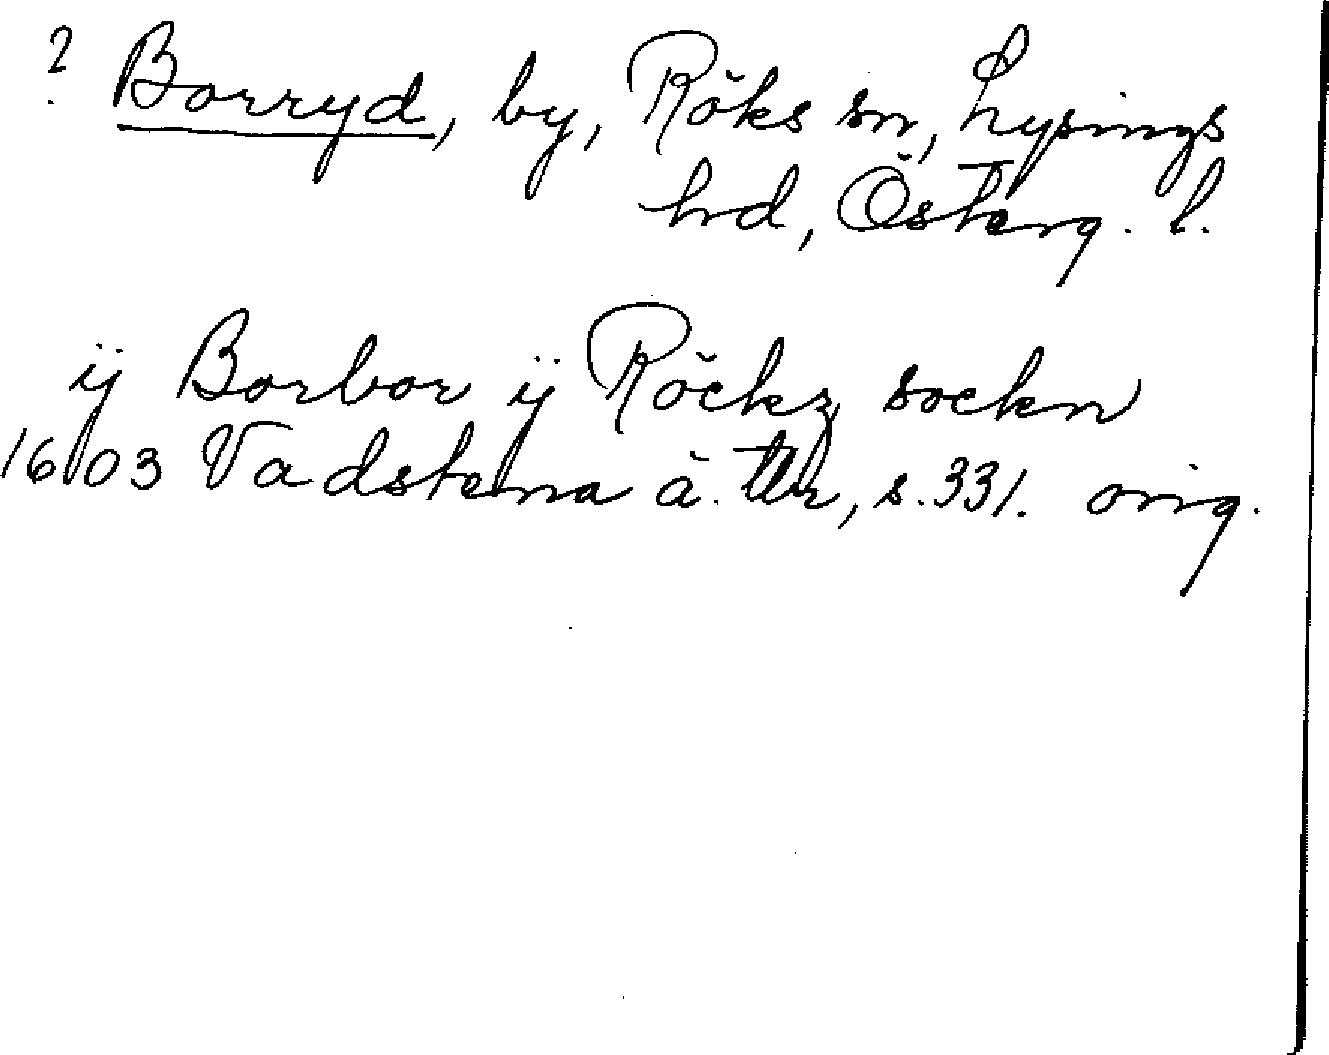 ? Borryd, by, Röks sn, Lysings
hrd, Österg. l.
ÿ Borbor ÿ Röckz sockn
1603 Vadstena ä. tb, s. 331. orig.